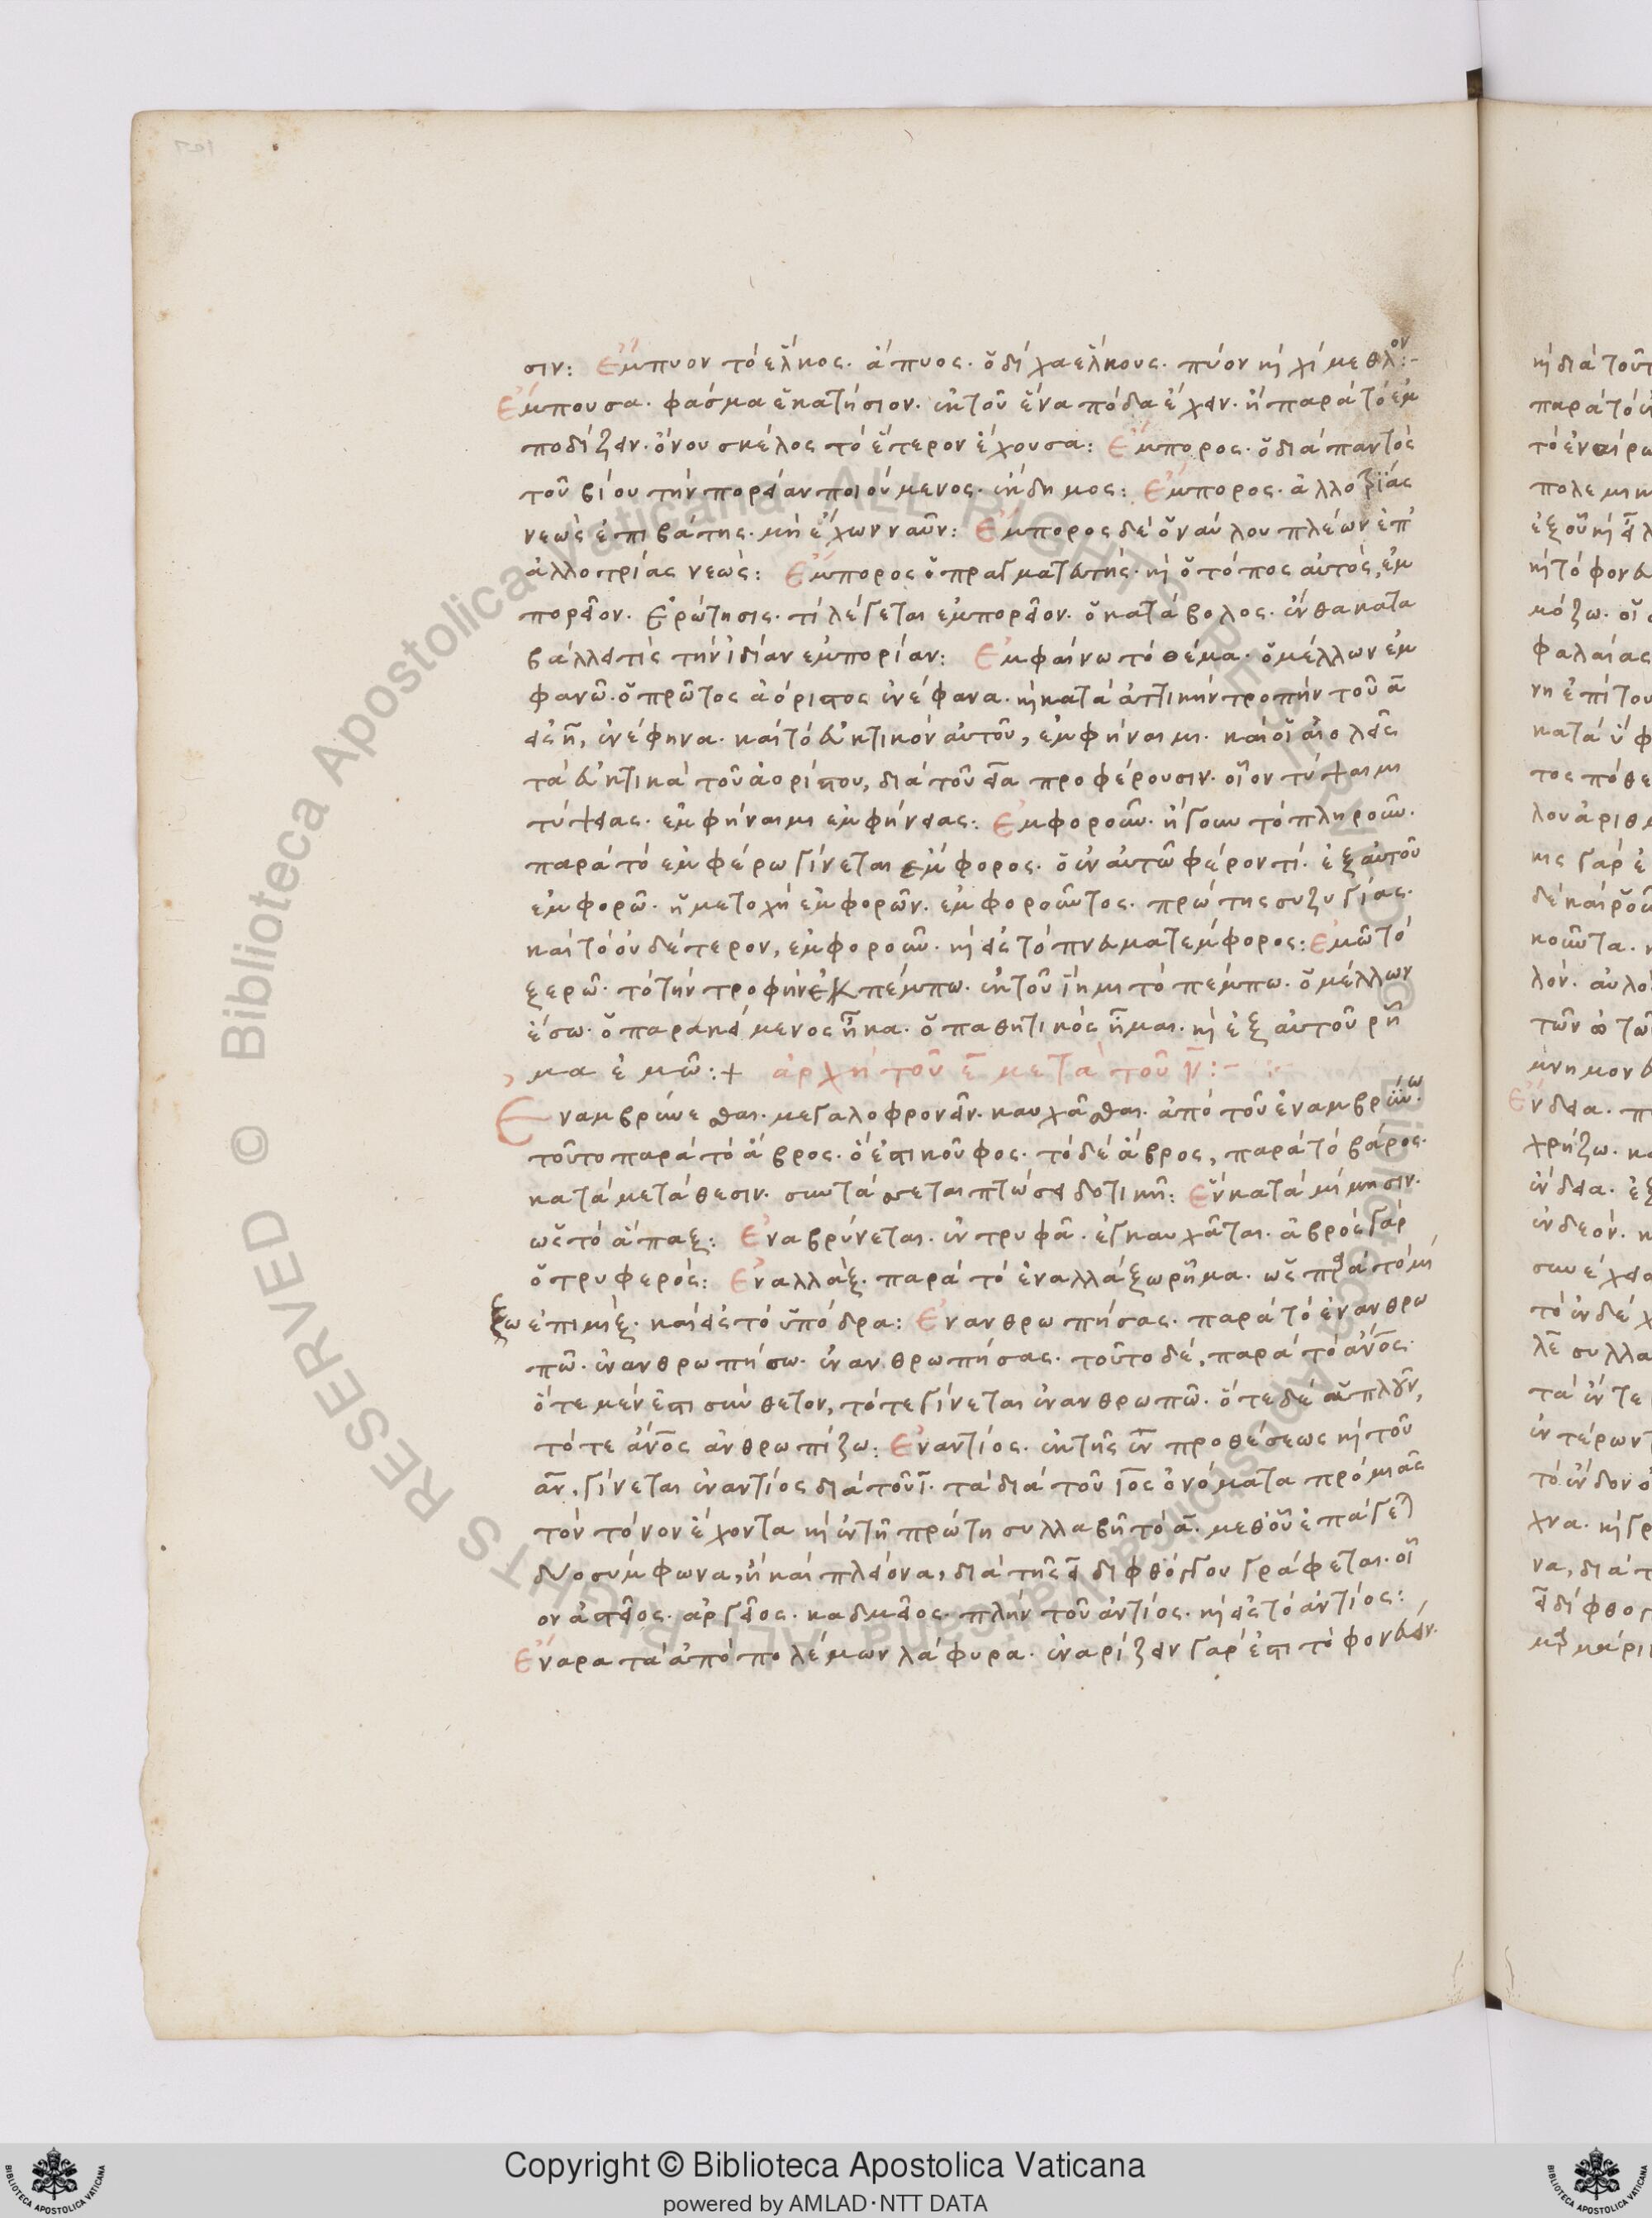 σιν: Ἔμπυον τὸ ἕλκος. ἄπυος. ὁ δίχα ἕλκους. πύον κὴ χίμεθλον:-
Ἔμπουσα. φάσμα ἑκατήσιον. ἐκ τοῦ ἕνα πόδα ἔχειν. ἢ παρὰ τὸ ἐμ
ποδίζειν. ὄνου σκέλος τὸ ἕτερον ἔχουσα: Ἔμπορος. ὁ διὰ παντὸς
τοῦ βίου τὴν πορείαν ποιούμενος. ἔκδημος: Ἔμπορος. ἀλλοτρίας
νεὼς ἐπιβάτης. μὴ ἔχων ναῦν: Ἔμπορος δὲ ὁ ναύλου πλέων ἐπ'
ἀλλοτρίας νεώς: Ἔμπορος ὁ πραγματευτής. κὴ ὁ τόπος αὐτὸς, ἐμ
πορεῖον. Ἐρώτησις. τί λέγεται ἐμπορεῖον. ὁ κατάβολος. ἔνθα κατα
βάλλει τὶς τὴν ἰδίαν ἐμπορίαν: Ἐμφαίνω τὸ θέμα. ὁ μέλλων ἐμ
φανῶ. ὁ πρῶτος ἀόριστος ἐνέφανα. κὴ κατὰ ἀττικὴν τροπὴν τοῦ α
εἰς η, ἐνέφηνα. καὶ τὸ εὐκτικὸν αὐτοῦ, ἐμφήναιμι. καὶ οἱ αἰολεῖς
τὰ εὐκτικὰ τοῦ ἀορίστου, διὰ τοῦ εια προφέρουσιν. οἷον τύψαιμι
τύψειας. ἐμφήναιμι ἐμφήνειας: Ἐμφοροῦν. ἤγουν τὸ πληροῦν.
παρὰ τὸ ἐμφέρω γίνεται ἔμφορος. ὁ ἐν αὐτῶ φέρων τί. ἐξ αὐτοῦ
ἐμφορῶ. ἡ μετοχὴ ἐμφορῶν. ἐμφοροῦντος. πρώτης συζυγίας.
καὶ τὸ οὐδέτερον, ἐμφοροῦν. κὴ εἰς τὸ πνευματέμφορος: Ἐμῶ τὸ
ξερῶ. τὸ τὴν τροφὴν ἐκπέμπω. ἐκ τοῦ ἵημι τὸ πέμπω. ὁ μέλλων
ἔσω. ὁ παρακείμενος ἧκα. ὁ παθητικὸς ἧμαι. κὴ ἐξ αὐτοῦ ῥῆ
μα ἐμῶ:+ ἀρχὴ τοῦ ε μετὰ τοῦ ν:-
Ἐναμβρύνεσθαι. μεγαλοφρονεῖν. καυχᾶσθαι. ἀπὸ τοῦ ἐναμβρύνω.
τοῦτο παρὰ τὸ ἄβρος. ὅ ἐστι κοῦφος. τὸ δὲ ἄβρος, παρὰ τὸ βάρος.
κατὰ μετάθεσιν. συντάσσεται πτώσει δοτικῆ: Ἓν κατὰ μίμησιν.
ὡς τὸ ἅπαξ: Ἐναβρύνεται. ἐντρυφᾶ. ἐγκαυχᾶται. ἁβρὸς γὰρ
ὁ τρυφερός: Ἐναλλάξ. παρὰ τὸ ἐναλλάξω ῥῆμα. ὡς παρὰ τὸ μί
ξω ἐπιμίξ. καὶ εἰς τὸ ὑπόδρα: Ἐνανθρωπήσας. παρὰ τὸ ἐνανθρω
πῶ. ἐνανθρωπήσω. ἐνανθρωπήσας. τοῦτο δὲ, παρὰ τὸ ἄνος.
ὅτε μέν ἐστι σύνθετον, τότε γίνεται ἐνανθρωπῶ. ὅτε δὲ ἁπλοῦν,
τότε ἄνος ἀνθρωπίζω: Ἐναντίος. ἐκ τῆς ἐν προθέσεως κὴ τοῦ
αν, γίνεται ἐναντίος διὰ τοῦ ι. τὰ διὰ τοῦ ιος ὀνόματα πρὸ μιᾶς
τὸν τόνον ἔχοντα κὴ ἐν τῆ πρώτη συλλαβῆ τὸ α. μεθ' οὗ ἐπάγε
δύο σύμφωνα, ἢ καὶ πλείονα, διὰ τῆς ει διφθόγγου γράφεται. οἷ
ον ἀστεῖος. ἀργεῖος. καδμεῖος. πλὴν τοῦ ἀντίος. κὴ εἰς τὸ ἀντίος:
Ἔναρα τὰ ἀπὸ πολέμων λάφυρα. ἐναρίζειν γάρ ἐστι τὸ φονεύειν.
Copyright © Biblioteca Apostolica Vaticana
powered by AMLAD・NTT DATA